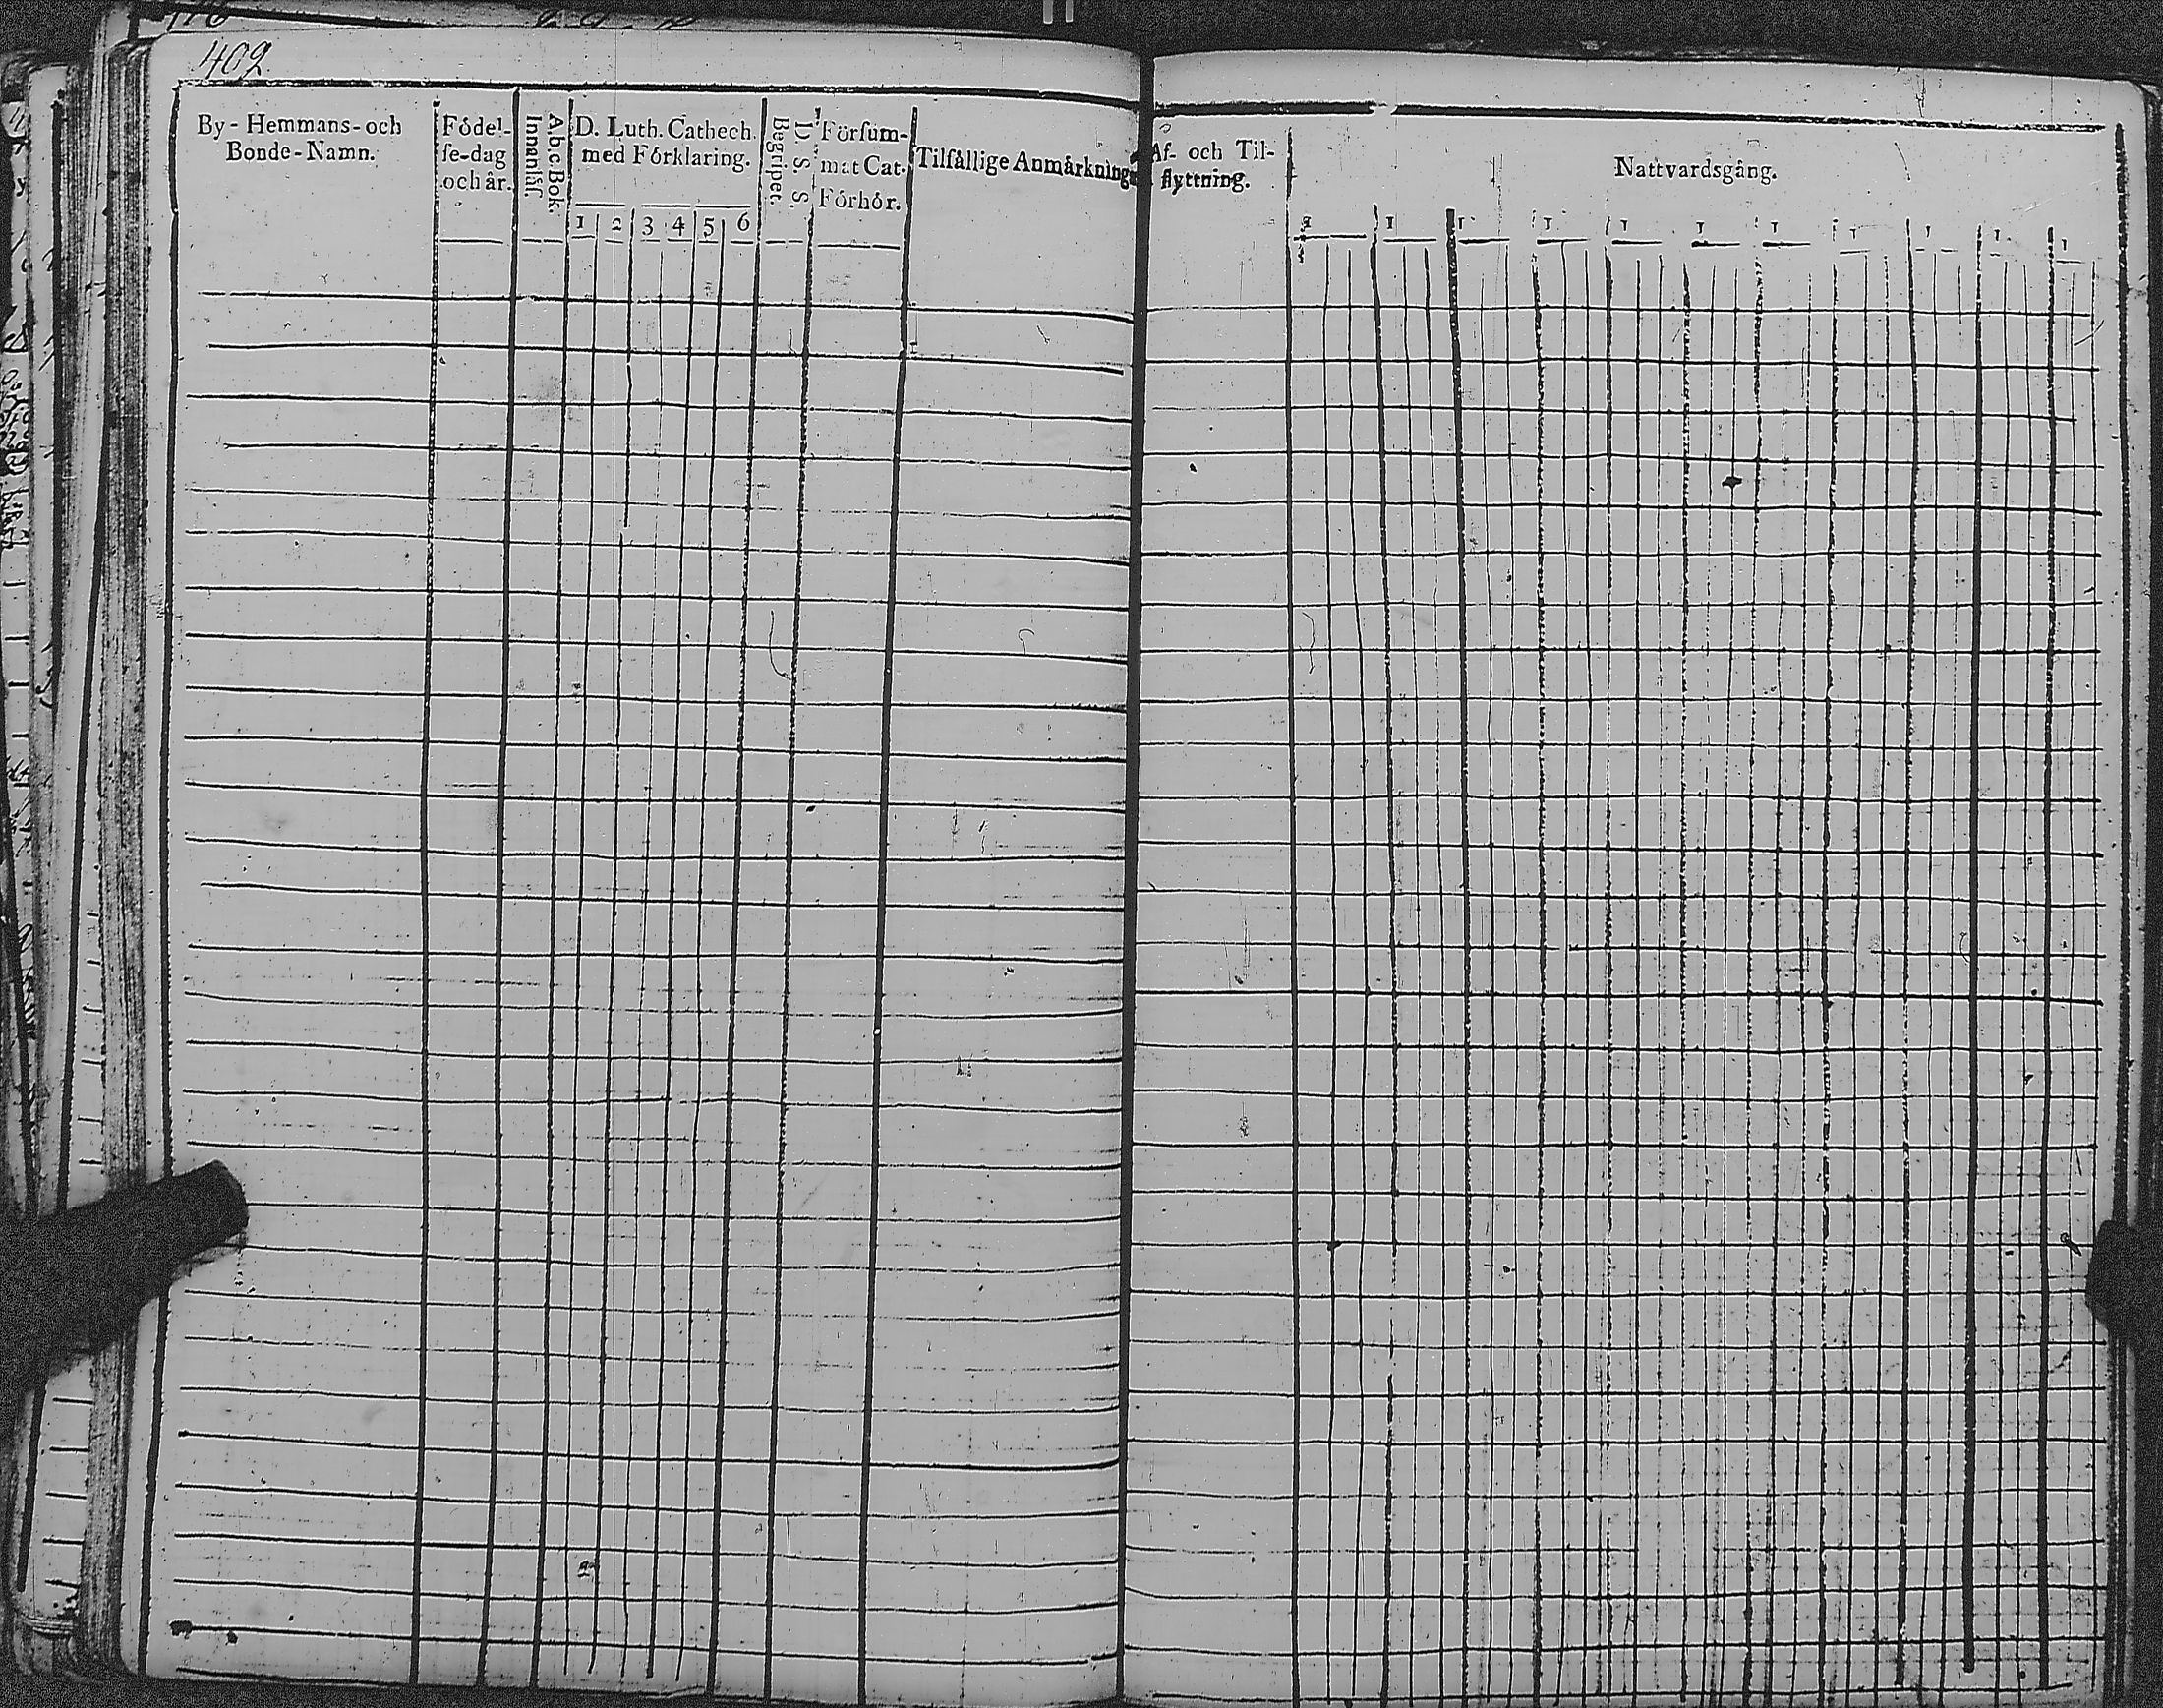 402.
By-Hemmans-och
Bonde-Namn.
Födel-
ſe-dag
och år.
Abc Bok.
Innanläſ.
D. Luth. Cathech.
med Förklaring.
1 2 3 4 5 6
D. S. S.
Begriper.
Förſum-
mat Cat.
Förhör.
Tilfällige Anmärkning
Af- och Til-
flyttning.
Nattvardsgång.
1 1 1 1 1 1 1 1 1 1 1